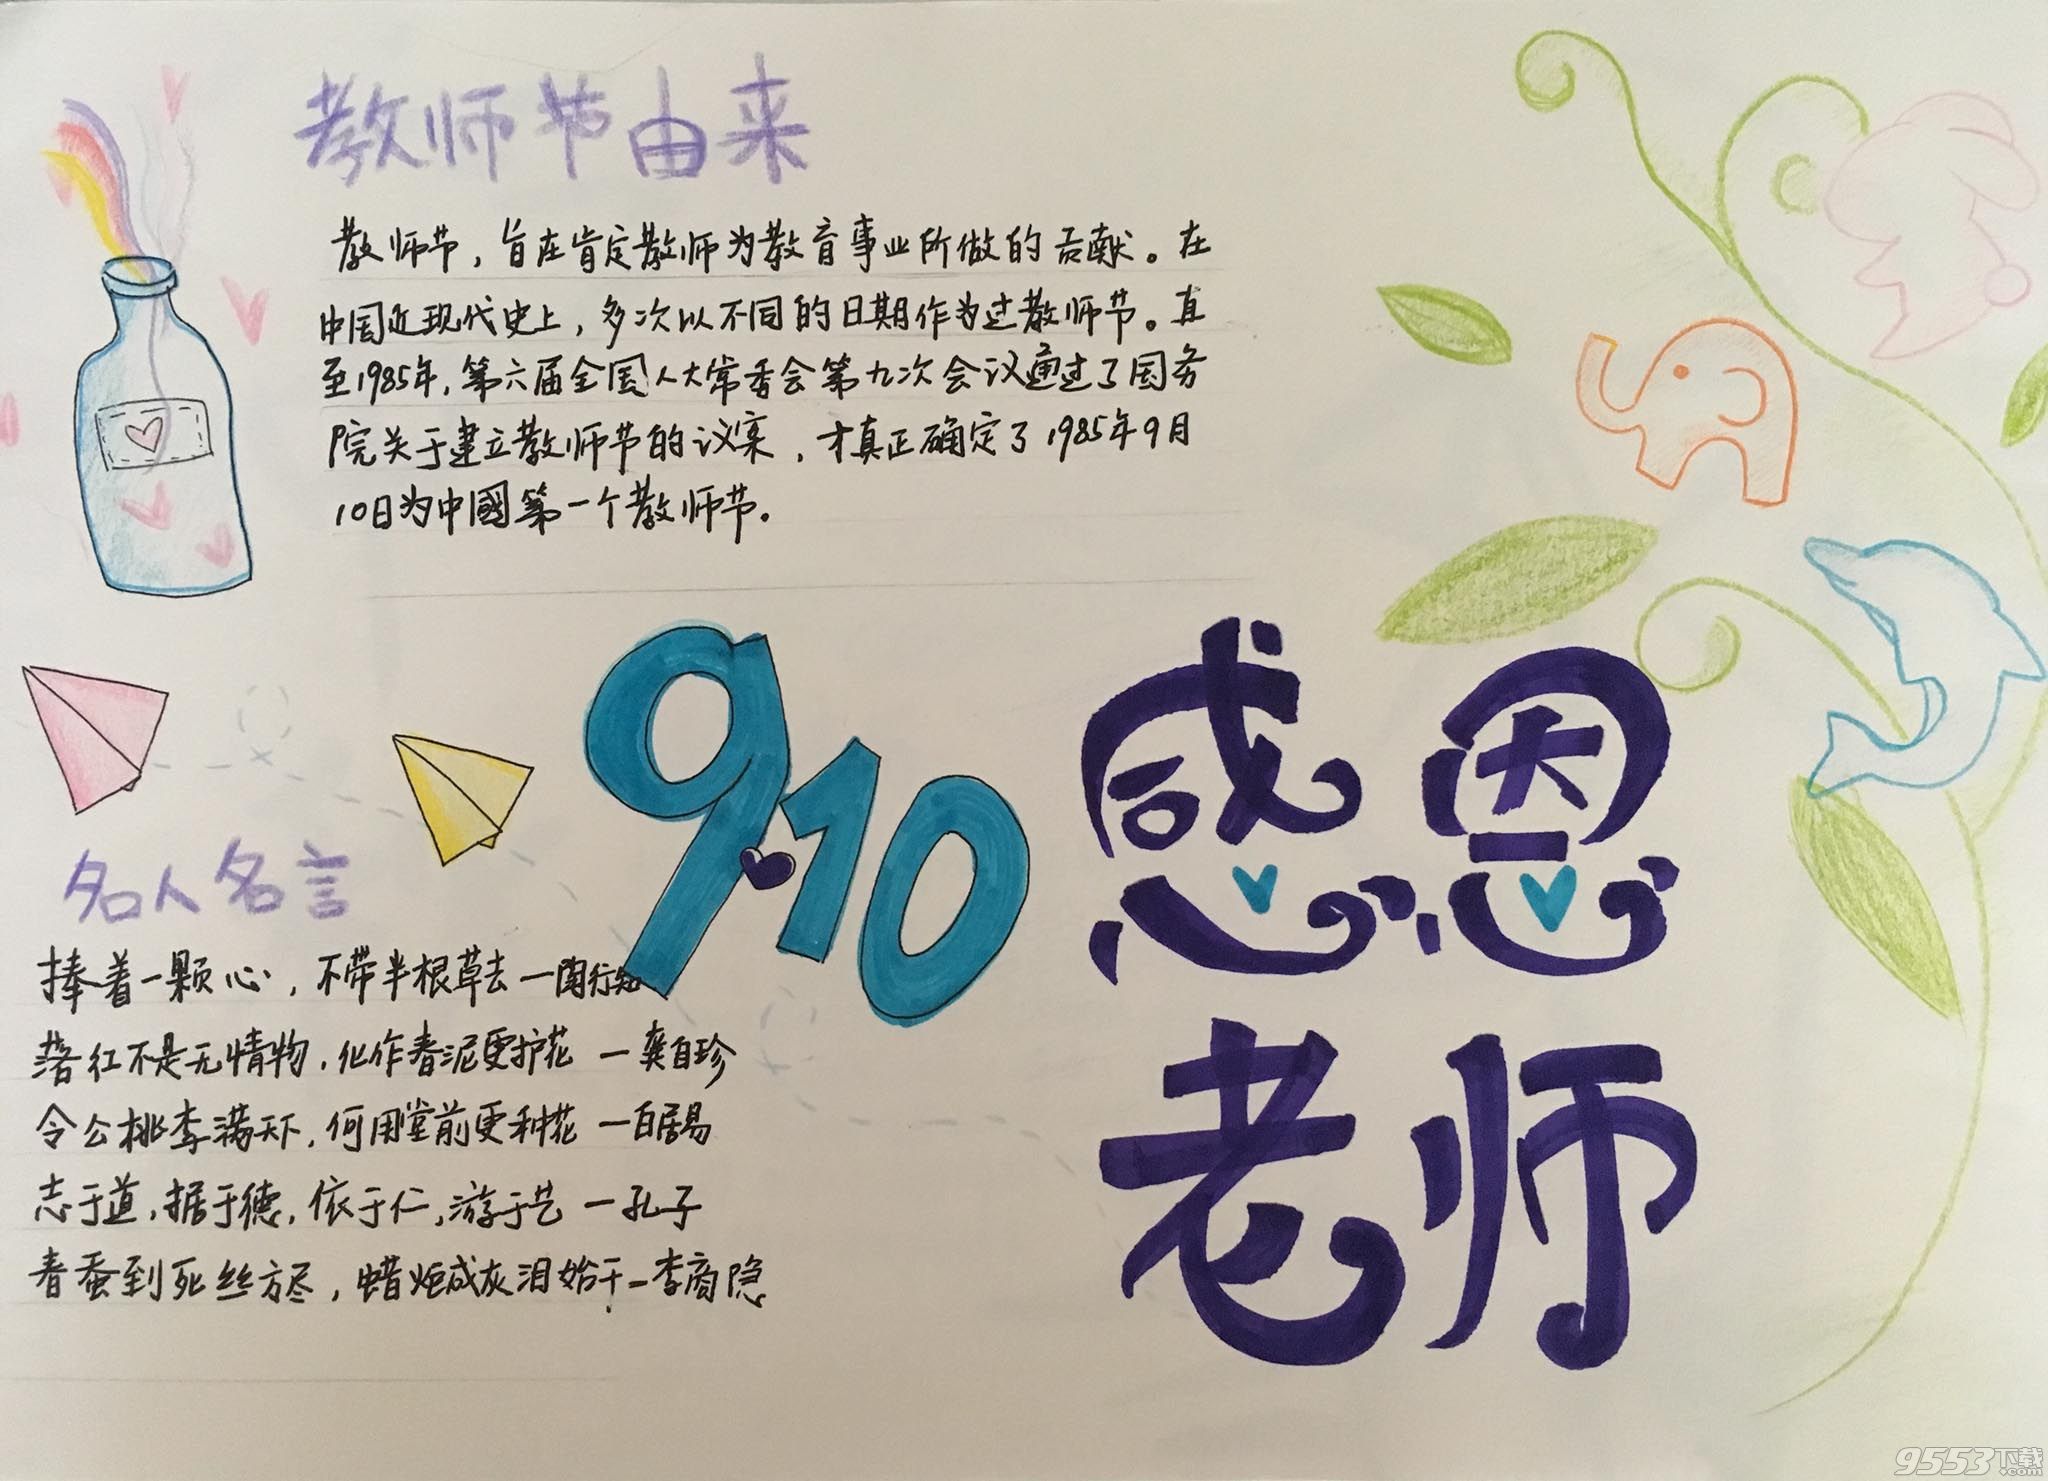 教师节由来
教师节，旨在肯定教师为教育事业所做的贡献。在
中国近现代史上，多次以不同的日期作为过教师节。直
至1985年，第六届全国人大常委会第九次会议通过了国务
院关于建立教师节的议案，才真正确定了1985年9月
10日为中國第一个教师节。
9.10
感恩
老师
名人名言
捧着一颗心，不带半根草去一陶行知
落红不是无情物，化作春泥更护花 一龚自珍
令公桃李满天下，何用堂前更种花 一白居易
志于道，据于德，依于仁，游于艺 一孔子
春蚕到死丝方尽，蜡炬成灰泪始干一李商隐
9553下载